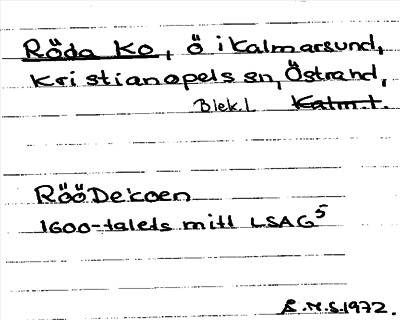 Röda Ko, ö i Kalmarsund,
Kristianopels sn, Östrand,
Blek.l Kalm.l.
RööDekoen
1600-talets mitt LSAG5
E.M.S.1972.